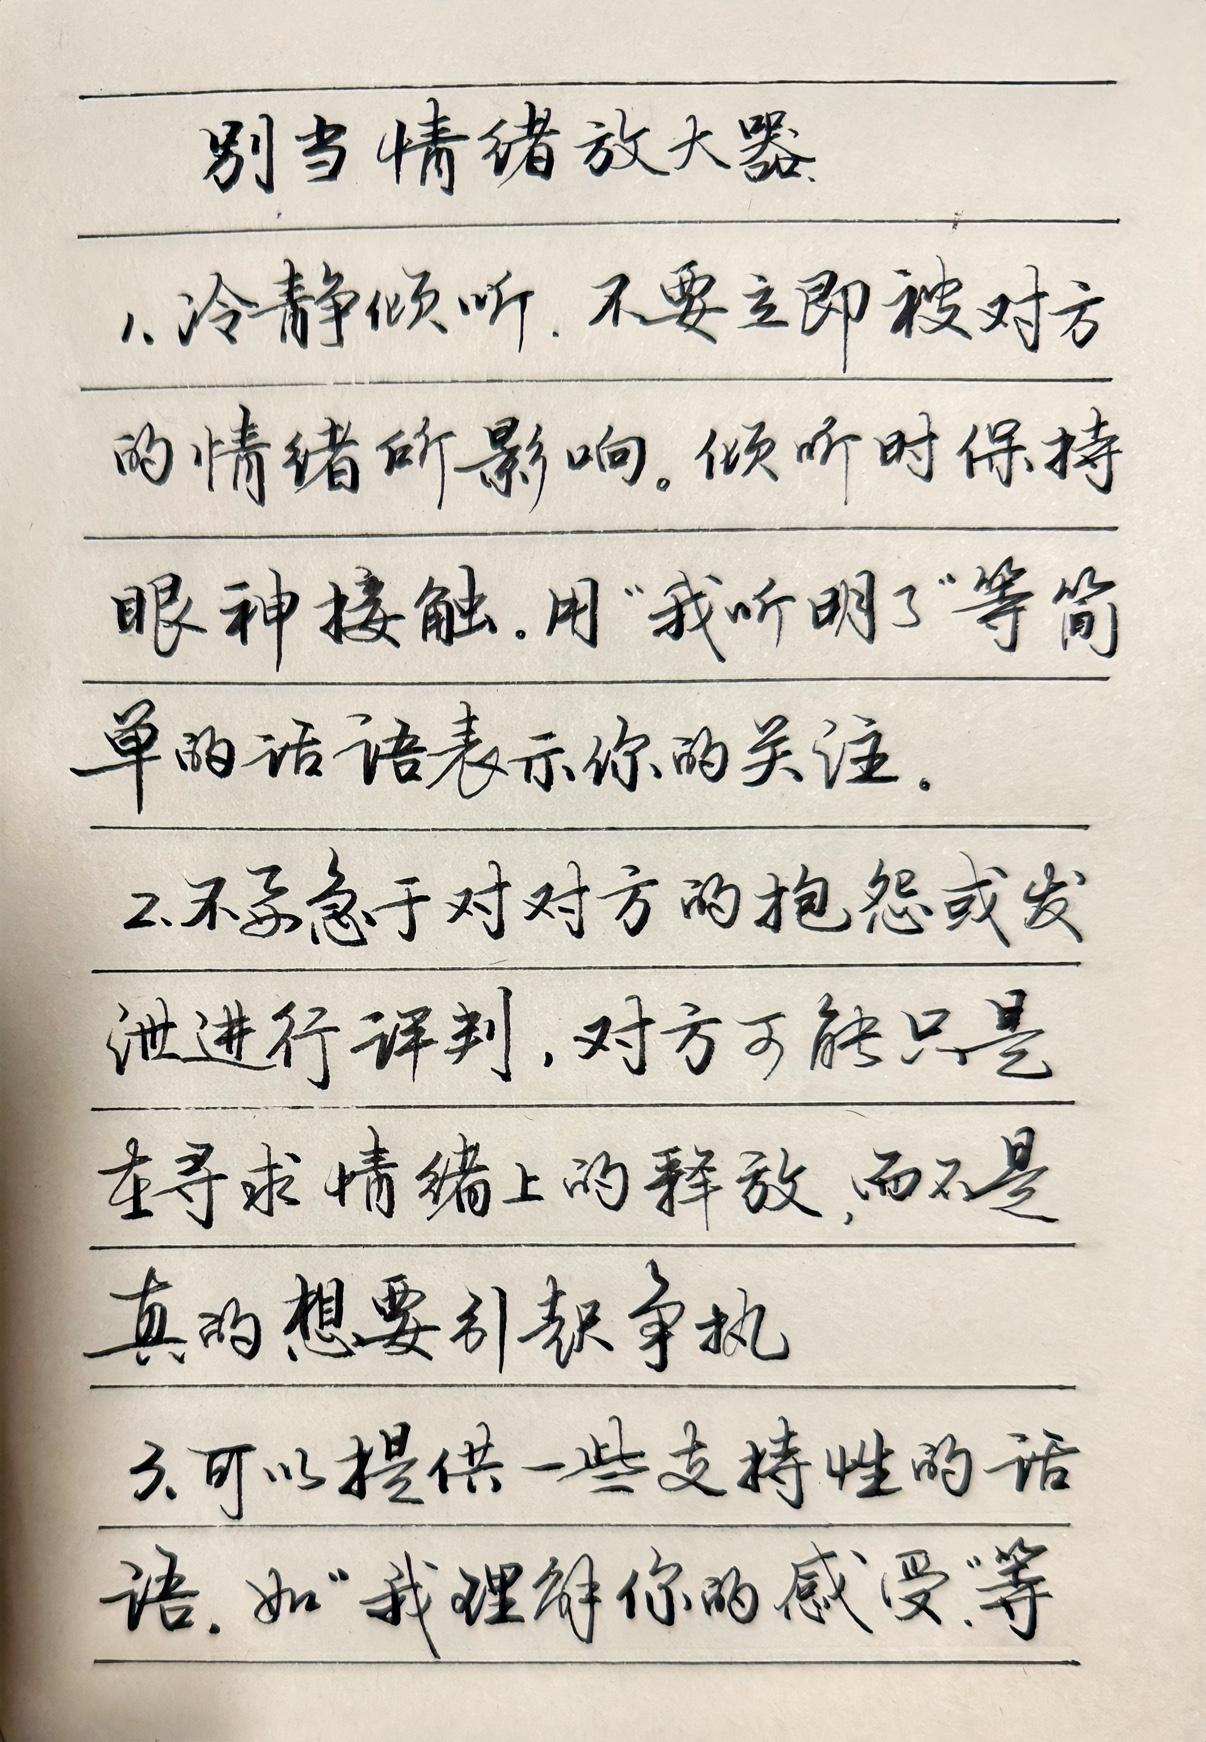 别当情绪放大器.
1、冷静倾听.不要立即被对方
的情绪所影响。倾听时保持
眼神接触。用“我听明了”等简
单的话语表示你的关注。
2、不要急于对对方的抱怨或发
泄进行评判,对方可能只是
在寻求情绪上的释放,而不是
真的想要引起争执
3、可以提供一些支持性的话
语.如“我理解你的感受”.等